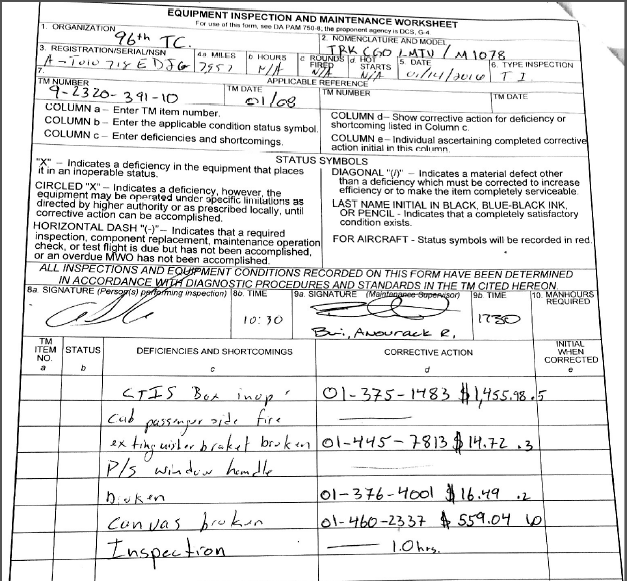 EQUIPMENT INSPECTION AND MAINTENANCE WORKSHEET
For use of this form, see DA PAM 750-8, the proponent agency is DCS, G-4
1. ORGANIZATION
96th TC.
2. NOMENCLATURE AND MODEL
TRK CGO LMTV / M1078
3. REGISTRATION/SERIAL/NSN
4a. MILES
7957
b. HOURS
N/A
c. ROUNDS FIRED
N/A
d. HOT STARTS
N/A
5. DATE
6. TYPE INSPECTION
T I
7.
APPLICABLE REFERENCE
TM NUMBER
9-2320-391-10
TM DATE
01/08
TM NUMBER
TM DATE
COLUMN a – Enter TM item number.
COLUMN b – Enter the applicable condition status symbol.
COLUMN c – Enter deficiencies and shortcomings.
COLUMN d – Show corrective action for deficiency or
shortcoming listed in Column c.
COLUMN e – Individual ascertaining completed corrective
action initial in this column.
STATUS SYMBOLS
"X" – Indicates a deficiency in the equipment that places
it in an inoperable status.
CIRCLED "X" – Indicates a deficiency, however, the
equipment may be operated under specific limitations as
directed by higher authority or as prescribed locally, until
corrective action can be accomplished.
HORIZONTAL DASH "(-)" – Indicates that a required
inspection, component replacement, maintenance operation
check, or test flight is due but has not been accomplished,
or an overdue MWO has not been accomplished.
DIAGONAL "(/)" – Indicates a material defect other
than a deficiency which must be corrected to increase
efficiency or to make the item completely serviceable.
LAST NAME INITIAL IN BLACK, BLUE-BLACK INK,
OR PENCIL - Indicates that a completely satisfactory
condition exists.
FOR AIRCRAFT - Status symbols will be recorded in red.
ALL INSPECTIONS AND EQUIPMENT CONDITIONS RECORDED ON THIS FORM HAVE BEEN DETERMINED
IN ACCORDANCE WITH DIAGNOSTIC PROCEDURES AND STANDARDS IN THE TM CITED HEREON.
8a. SIGNATURE (Person(s) performing inspection)
8b. TIME
10:30
9a. SIGNATURE (Maintenance Supervisor)
Bui, Anourack R,
9b. TIME
1730
10. MANHOURS
REQUIRED
TM ITEM NO. a
STATUS b
DEFICIENCIES AND SHORTCOMINGS c
CORRECTIVE ACTION d
INITIAL WHEN CORRECTED e
CTIS Box inop 01-375-1483 $1,455.98 .5
Cab passenger side fire
extinguisher braket broken 01-445-7813 $14.72 .3
P/S window handle
Broken 01-376-4001 $16.49 .2
Canvas broken 01-460-2337 $559.04
Inspection 1.0 hrs.